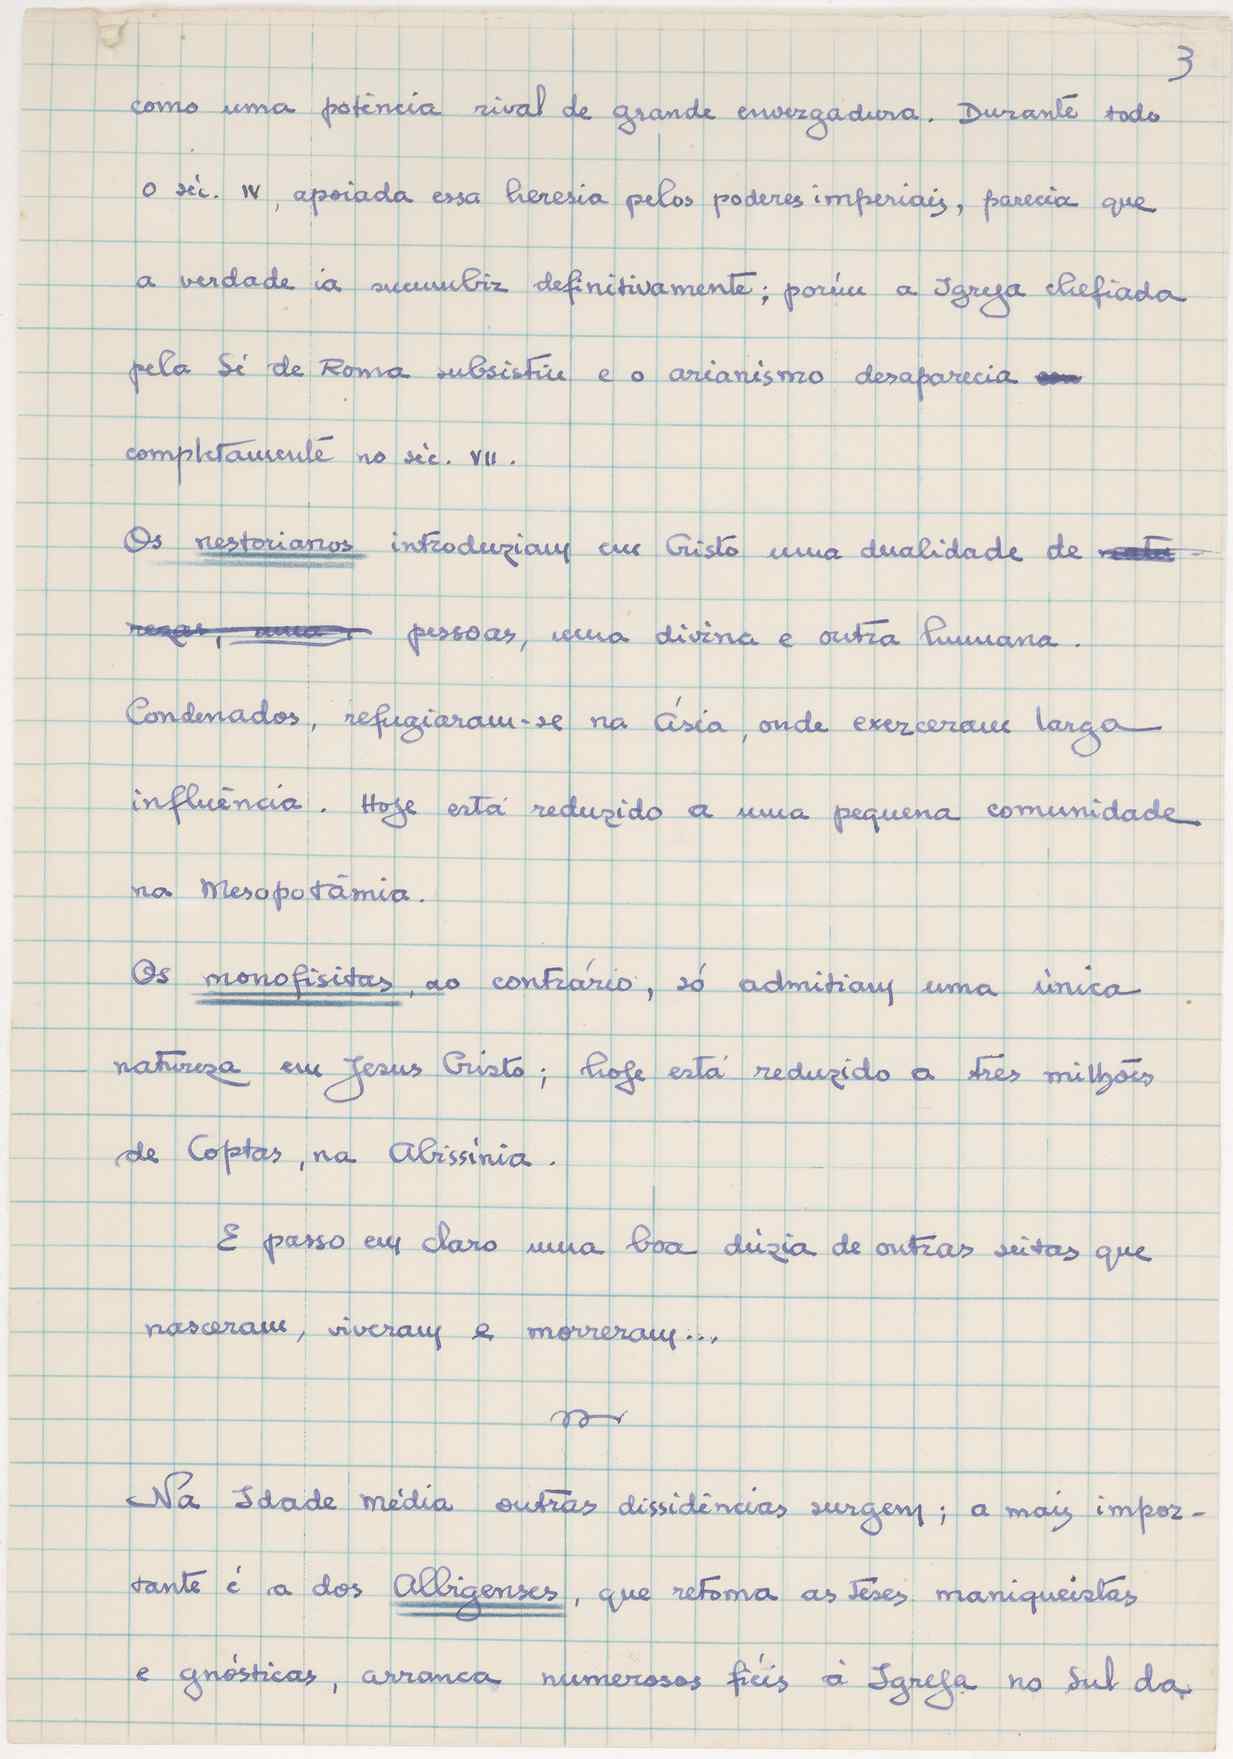 3
como uma potência rival de grande envergadura. Durante todo
o séc. IV, apoiada essa heresia pelos poderes imperiais, parecia que
a verdade ia sucumbir definitivamente; porém a Igreja chefiada
pela Sé de Roma subsistiu e o arianismo desaparecia
completamente no séc. VII.
Os nestorianos introduziam em Cristo uma dualidade de natu-
rezas, uma, pessoas, uma divina e outra humana.
Condenados, refugiaram-se na Ásia, onde exerceram larga
influência. Hoje está reduzido a uma pequena comunidade
na Mesopotâmia.
Os monofisitas, ao contrário, só admitiam uma única
natureza em Jesus Cristo; hoje está reduzido a três milhões
de Coptas, na Abissínia.
E passo em claro uma boa dúzia de outras seitas que
nasceram, viveram e morreram...
Na Idade média outras dissidências surgem; a mais impor-
tante é a dos Albigenses, que retoma as téses maniqueistas
e gnósticas, arranca numerosos fiéis à Igreja no Sul da